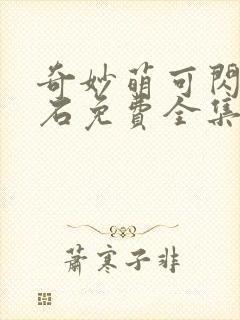 奇妙萌可閃
石免費全集
蕭寒子非